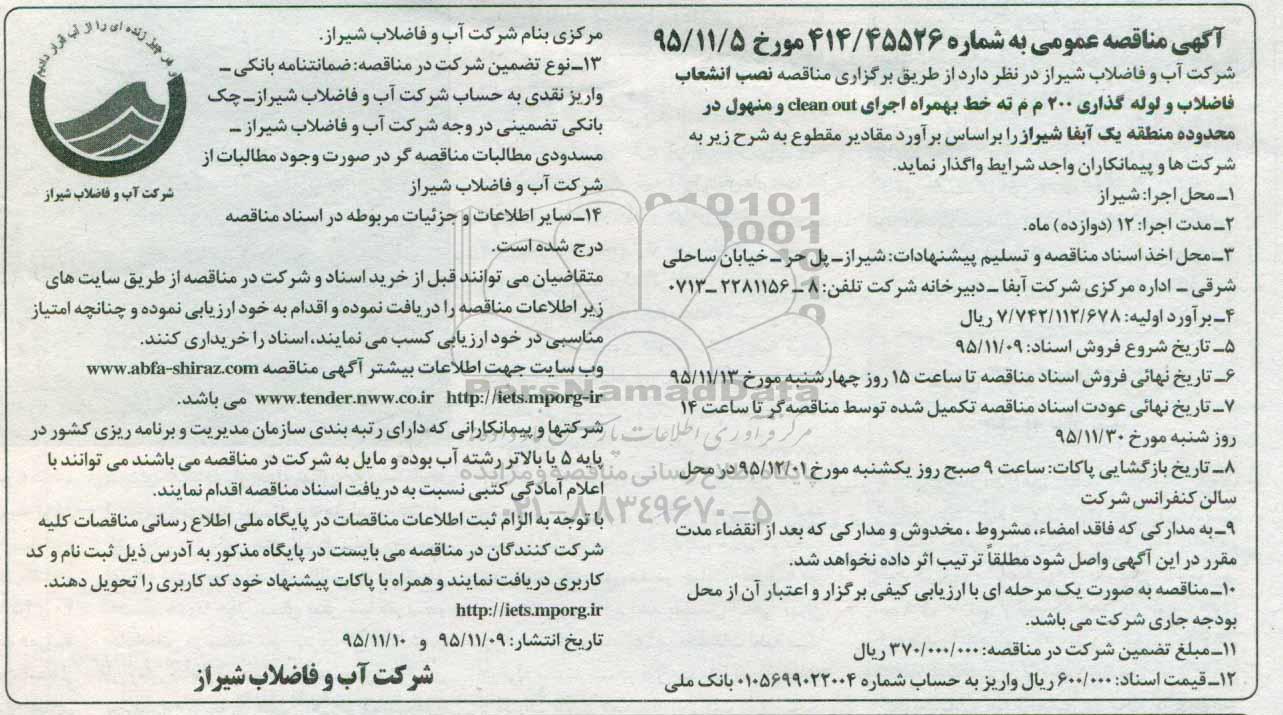 آگهی مناقصه عمومی به شماره ۴۱۴/۴۵۵۲۶ مورخ ۹۵/۱۱/۵
شرکت آب و فاضلاب شیراز در نظر دارد از طریق برگزاری مناقصه نصب انشعاب
فاضلاب و لوله گذاری ۲۰۰ م م ته خط بهمراه اجرای clean out و منهول در
محدوده منطقه یک آبفا شیراز را براساس برآورد مقادیر مقطوع به شرح زیر به
شرکت ها و پیمانکاران واجد شرایط واگذار نماید.
۱ـ محل اجرا: شیراز
۲ـ مدت اجرا: ۱۲ (دوازده) ماه.
۳ـ محل اخذ اسناد مناقصه و تسلیم پیشنهادات: شیراز ـ پل حر ـ خیابان ساحلی
شرقی ـ اداره مرکزی شرکت آبفا ـ دبیرخانه شرکت تلفن: ۸ ـ ۲۲۸۱۱۵۶ ـ ۰۷۱۳
۴ـ برآورد اولیه: ۷/۷۴۲/۱۱۲/۶۷۸ ریال
۵ـ تاریخ شروع فروش اسناد: ۹۵/۱۱/۰۹
۶ـ تاریخ نهائی فروش اسناد مناقصه تا ساعت ۱۵ روز چهارشنبه مورخ ۹۵/۱۱/۱۳
۷ـ تاریخ نهائی عودت اسناد مناقصه تکمیل شده توسط مناقصه گر تا ساعت ۱۴
روز شنبه مورخ ۹۵/۱۱/۳۰
۸ـ تاریخ بازگشایی پاکات: ساعت ۹ صبح روز یکشنبه مورخ ۹۵/۱۲/۰۱ در محل
سالن کنفرانس شرکت
۹ـ به مدارکی که فاقد امضاء، مشروط ، مخدوش و مدارکی که بعد از انقضاء مدت
مقرر در این آگهی واصل شود مطلقاً ترتیب اثر داده نخواهد شد.
۱۰ـ مناقصه به صورت یک مرحله ای با ارزیابی کیفی برگزار و اعتبار آن از محل
بودجه جاری شرکت می باشد.
۱۱ـ مبلغ تضمین شرکت در مناقصه: ۳۷۰/۰۰۰/۰۰۰ ریال
۱۲ـ قیمت اسناد: ۶۰۰/۰۰۰ ریال واریز به حساب شماره ۰۱۰۵۶۹۹۰۲۲۰۰۴ بانک ملی
مرکزی بنام شرکت آب و فاضلاب شیراز.
۱۳ـ نوع تضمین شرکت در مناقصه: ضمانتنامه بانکی ـ
واریز نقدی به حساب شرکت آب و فاضلاب شیراز ـ چک
بانکی تضمینی در وجه شرکت آب و فاضلاب شیراز ـ
مسدودی مطالبات مناقصه گر در صورت وجود مطالبات از
شرکت آب و فاضلاب شیراز
۱۴ـ سایر اطلاعات و جزئیات مربوطه در اسناد مناقصه
درج شده است.
متقاضیان می توانند قبل از خرید اسناد و شرکت در مناقصه از طریق سایت های
زیر اطلاعات مناقصه را دریافت نموده و اقدام به خود ارزیابی نموده و چنانچه امتیاز
مناسبی در خود ارزیابی کسب می نمایند، اسناد را خریداری کنند.
وب سایت جهت اطلاعات بیشتر آگهی مناقصه www.abfa-shiraz.com
http://iets.mporg-ir www.tender.nww.co.ir می باشد.
شرکتها و پیمانکارانی که دارای رتبه بندی سازمان مدیریت و برنامه ریزی کشور در
پایه ۵ یا بالاتر رشته آب بوده و مایل به شرکت در مناقصه می باشند می توانند با
اعلام آمادگی کتبی نسبت به دریافت اسناد مناقصه اقدام نمایند.
با توجه به الزام ثبت اطلاعات مناقصات در پایگاه ملی اطلاع رسانی مناقصات کلیه
شرکت کنندگان در مناقصه می بایست در پایگاه مذکور به آدرس ذیل ثبت نام و کد
کاربری دریافت نمایند و همراه با پاکات پیشنهاد خود کد کاربری را تحویل دهند.
http://iets.mporg.ir
تاریخ انتشار: ۹۵/۱۱/۰۹ و ۹۵/۱۱/۱۰
شرکت آب و فاضلاب شیراز
و هر چیز زنده ای را از آب قرار دادیم
شرکت آب و فاضلاب شیراز
ParsNamadData
مرکز فرآوری اطلاعات پارس نماد داده ها
پایگاه اطلاع رسانی مناقصه و مزایده
۰۲۱-۸۸۳۴۹۶۷۰-۵